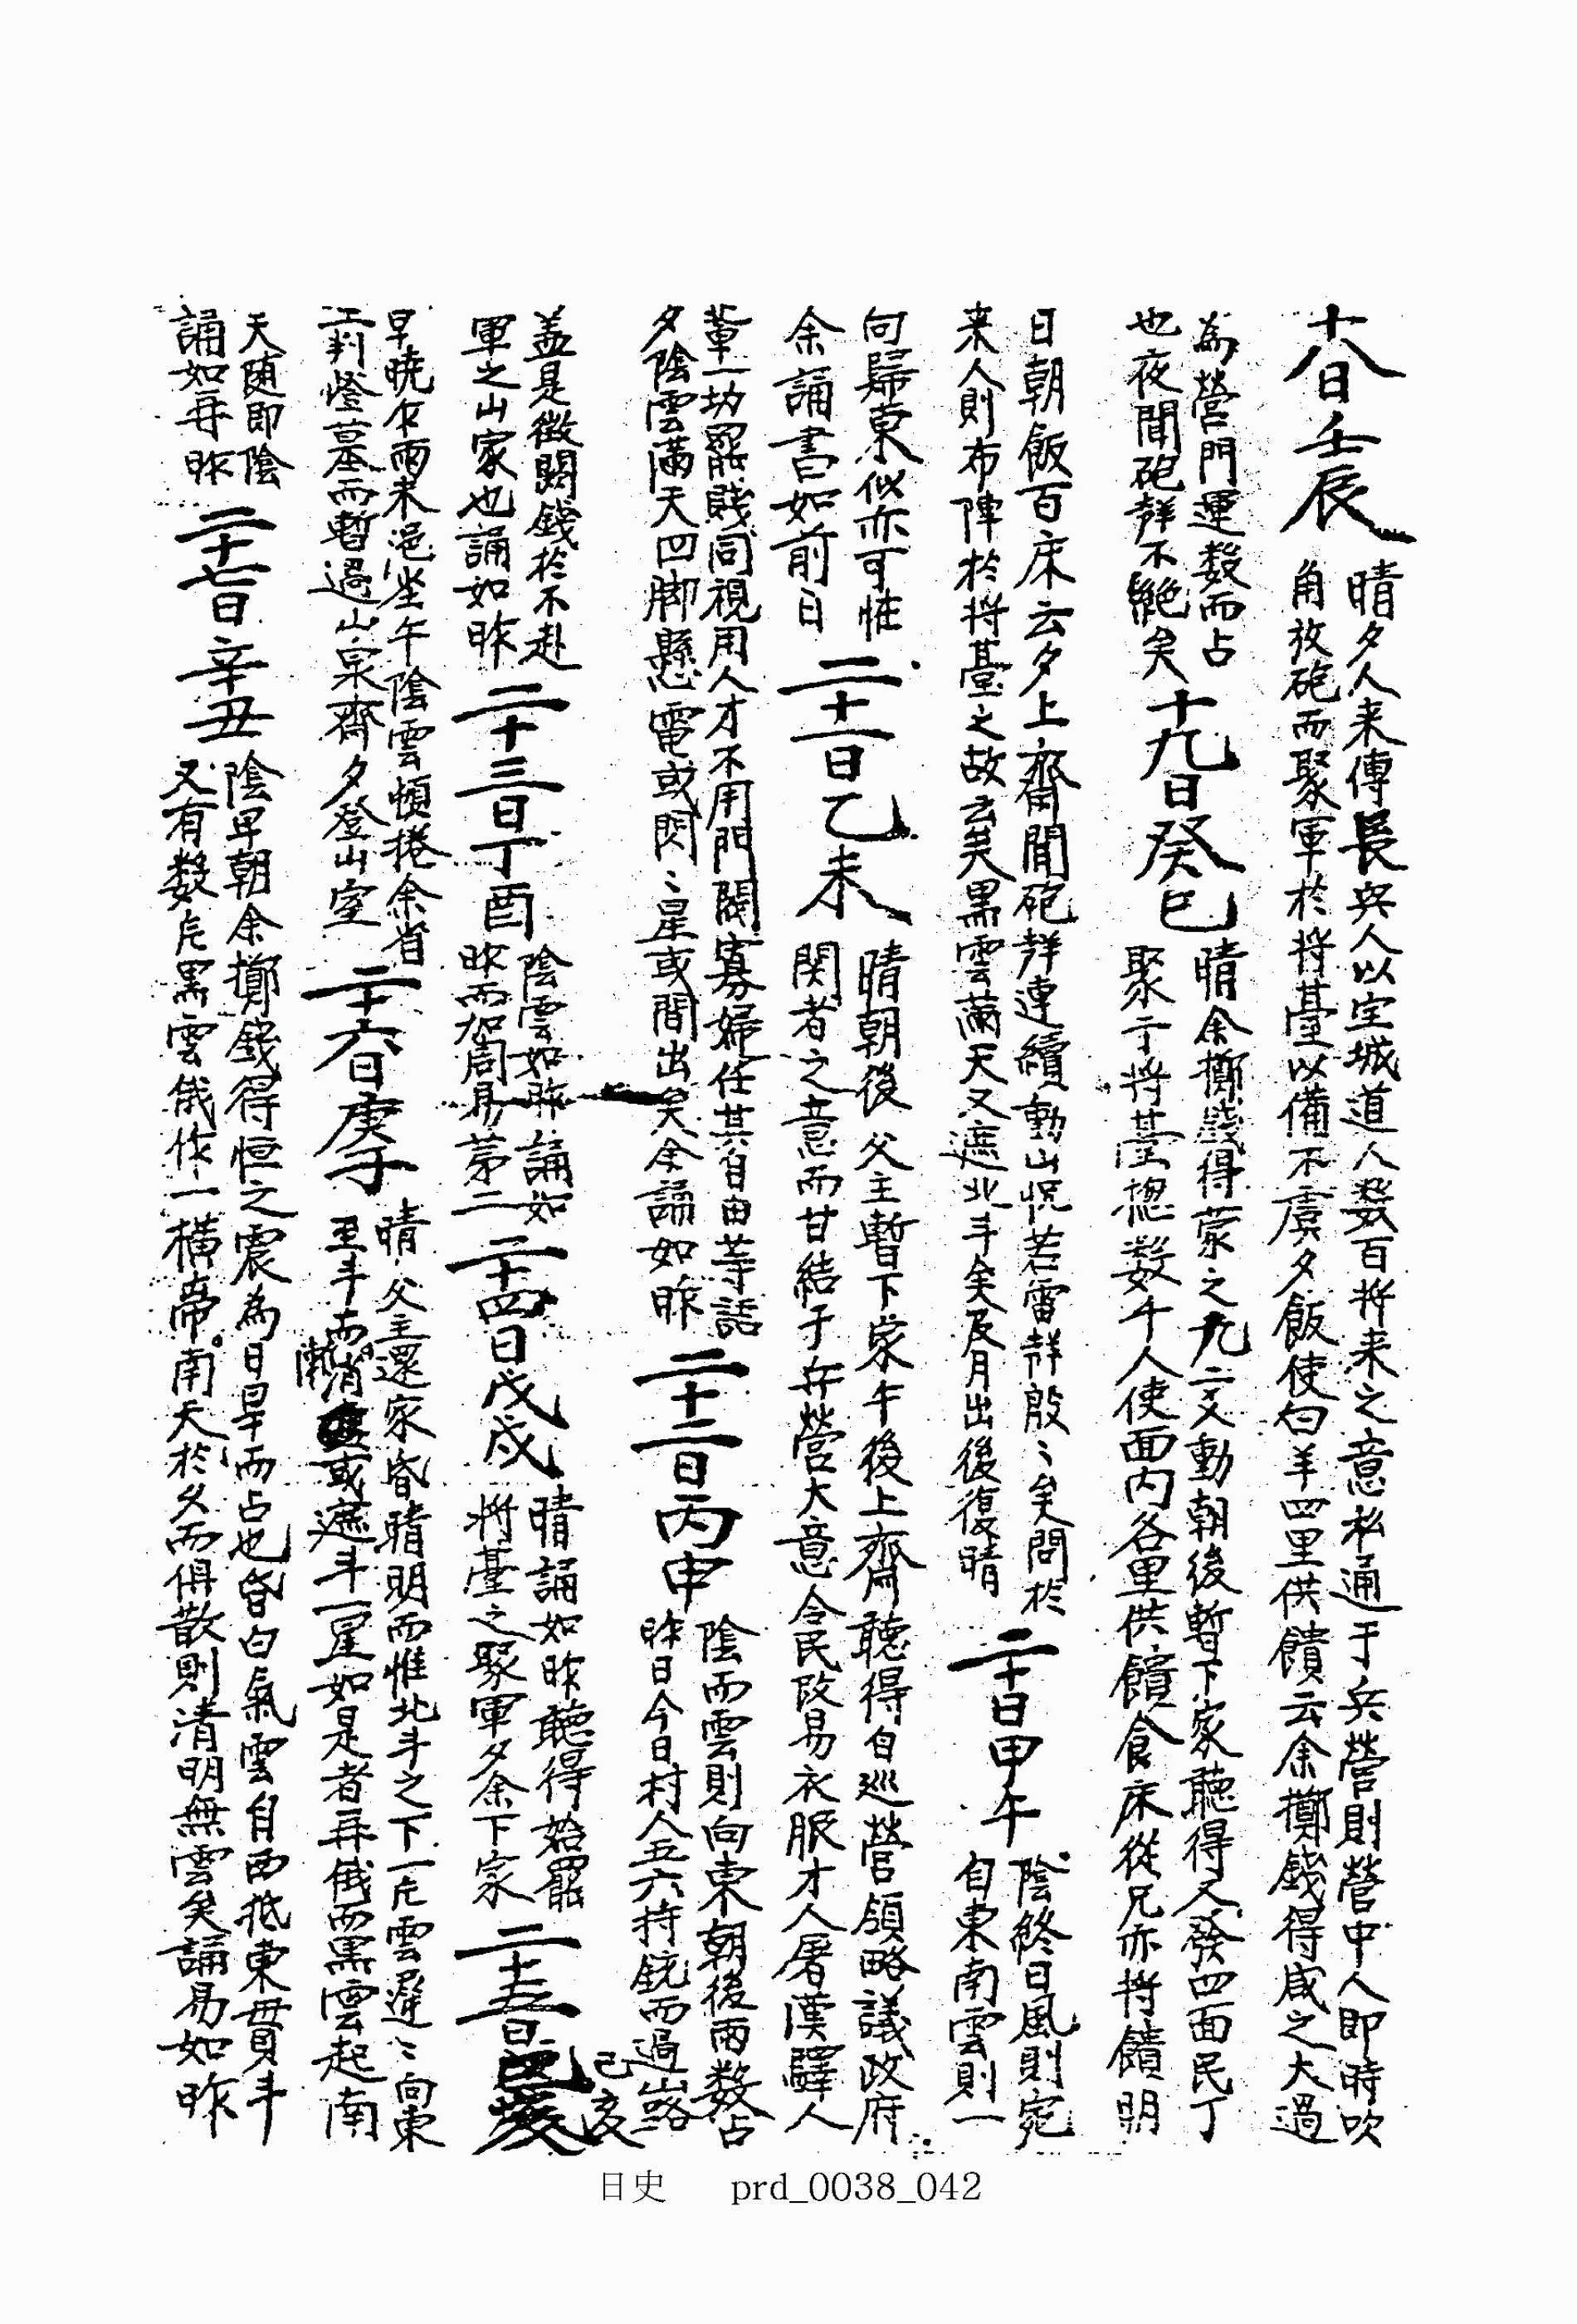 十八日壬辰
晴夕人来傳長兵人以宝城道人数百将来之意私通于兵營則營中人即時吹
角放砲而聚軍於将臺以備不虞夕飯使白羊四里供饋云余擲錢得咸之大過
為營門運数而占
也夜聞砲聲不絶矣
十九日癸巳
晴余擲錢得蒙之九二爻動朝後暫下家聽得又發四面民丁
聚于将臺揔数千人使面内各里供饋食床從兄亦持饋明
日朝飯百床云夕上齋聞砲聲連續動山怳若雷聲殷〻矣問於
来人則布陣於将臺之故云矣黒雲滿天又遮北斗矣辰月出後復晴
二十日甲午
陰終日風則宛
自東南雲則一
向歸東似亦可恠
余誦書如前日
二十一日乙未
晴朝後父主暫下家午後上齋聽得自巡營領略議政府
関者之意而甘結于兵營大意令民改易衣服才人屠漢驛人
輩一切罷賤同視用人才不用門閥寡婦任其自由等話
夕陰雲滿天四脚懸電或閃〻星或間出矣余誦如昨
二十二日丙申
陰而雲則向東朝後雨数占
昨日今日村人五六持銃而過山路
盖是徴閙錢於不赴
軍之山家也誦如昨
二十三日丁酉
陰雲如昨誦如
昨而加周易苐二
二十四日戊戌
晴誦如昨聽得始罷
将臺之聚軍夕余下家
二十五日
己亥
早曉乍雨未浥坐午陰雲頓捲余省
前燈墓而暫過山泉齋夕登山室
二十六日庚子
晴父主還家昏晴明而惟北斗之下一片雲遲〻向東
至斗而漸消或遮斗一星如是者再俄而黒雲起南
天随即陰
誦如再昨
二十七日辛丑
陰早朝余擲錢得恒之震為日旱而占也昏白氣雲自西抵東貫斗
又有数片黒雲俄作一橫帶南天於夕而俱散則清明無雲矣誦易如昨
日史 prd_0038_042